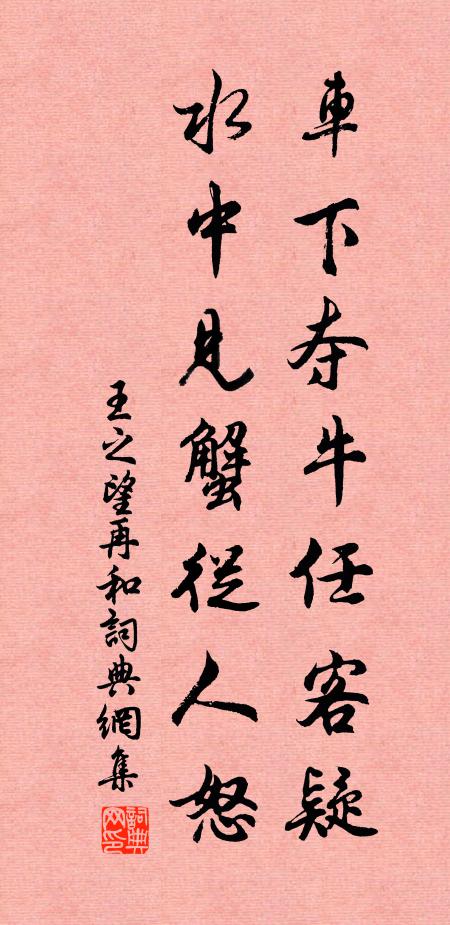 車下夺牛任客疑
水中見蟹從人怒
王之望再和詞典網集
詞典网印